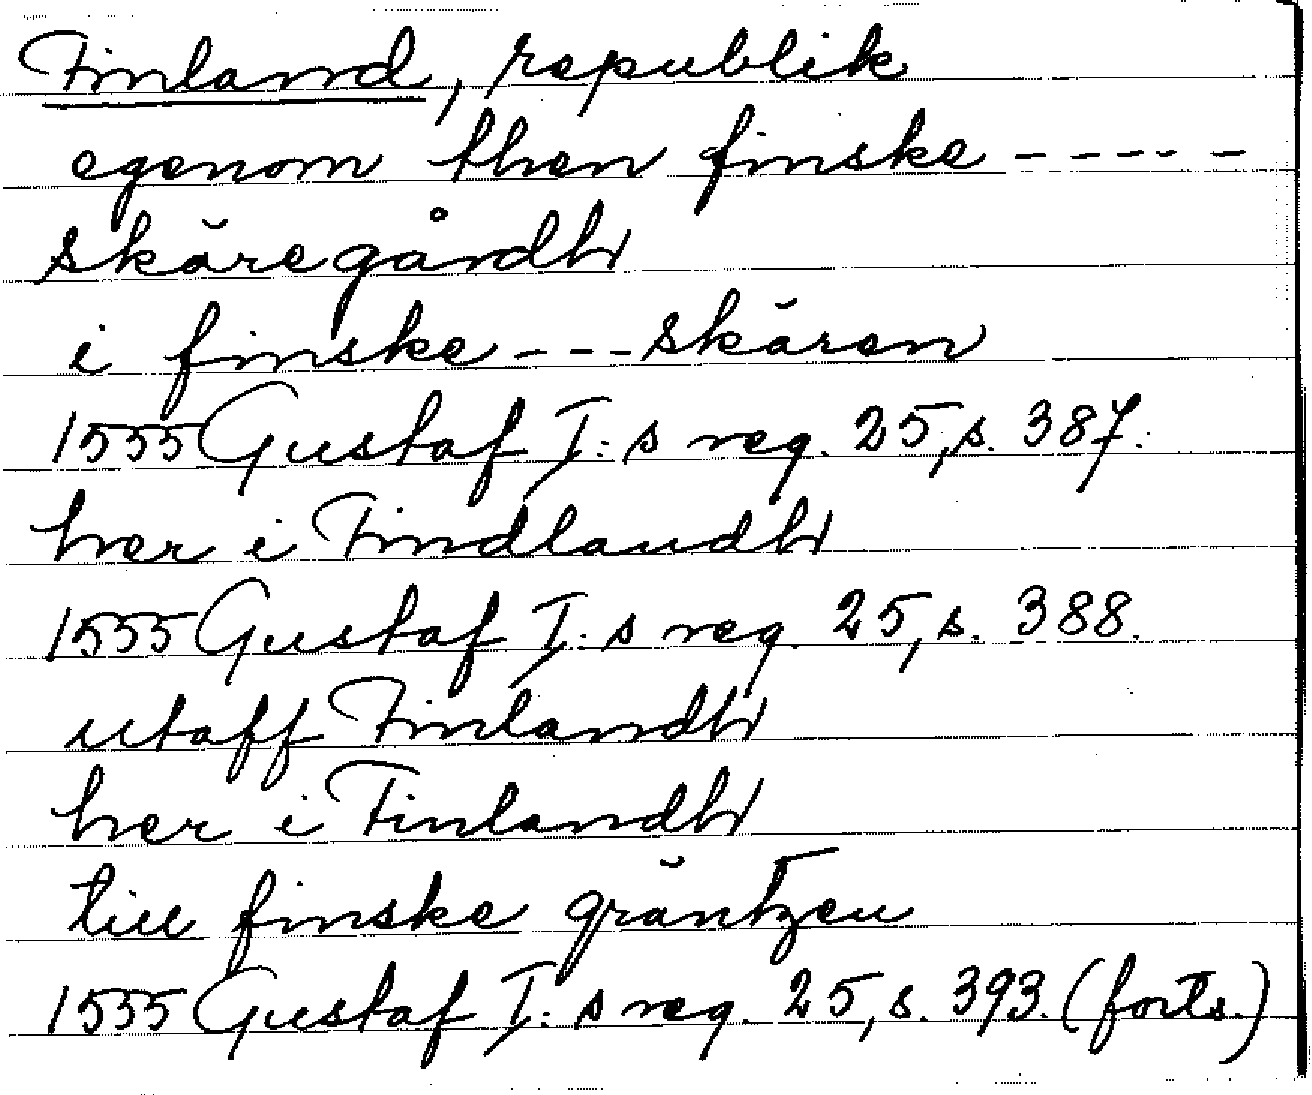 Finland, republik
egenom then finske - - - - -
skäregårdh
i finske - - - skären
1555 Gustaf I:s reg. 25, s. 387.
her i Findlandh
1555 Gustaf I:s reg. 25, s. 388.
utaff Finlandh
her i Finlandh
till finske gräntzen
1555 Gustaf I:s reg. 25, s. 393. (forts.)